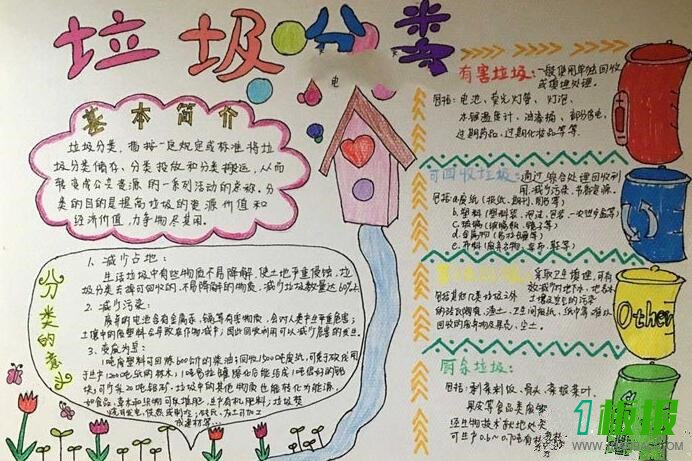 垃圾分类
电
基本简介
垃圾分类，指按一定规定或标准将垃
圾分类储存、分类投放和分类搬运，从而
转变成公共资源的一系列活动的总称。分
类的目的是提高垃圾的资源价值和
经济价值，力争物尽其用。
分类的意义
1、减少占地：
生活垃圾中有些物质不易降解，使土地严重侵蚀，垃
圾分类去掉可回收的、不易降解的物质，减少垃圾数量达60%
2、减少污染：
废弃的电池含有金属汞、镉等有毒物质，会对人类产生严重危害；
土壤中的废塑料会导致农作物减产；因此回收利用可以减少危害的发生。
3、变废为宝：
1吨废塑料可回炼600公斤的柴油；回收1500吨废纸，可免于砍伐用
于生产1200吨纸的林木；1吨易拉罐熔化后能结成1吨很好的铝
块，可少采20吨铝矿。垃圾中的其他物质也能转化为能源，
如食品、草木和织物可以堆肥，生产有机肥料；垃圾焚
有害垃圾：一般使用单独回收
或填埋处理。
包括：电池、荧光灯管、灯泡、
水银温度计、油漆桶、部分家电、
过期药品、过期化妆品等等。
可回收垃圾：通过综合处理回收利
用，减少污染，节省资源。
包括a、废纸（报纸、期刊、图书等）
b、塑料
c、玻璃
d、金属物
e、布料
采取卫生填埋，可有
效减少对地下水、地表水
土壤及空气的污染
包括除上述几类垃圾之外
的砖瓦陶瓷、渣土、卫生间废纸、纸巾等难以
回收的废弃物及果壳、尘土。
Other
厨余垃圾：
包括：剩菜剩饭、骨头、菜根菜叶、
果皮等食品类废物
经生物技术就地处理
1板报